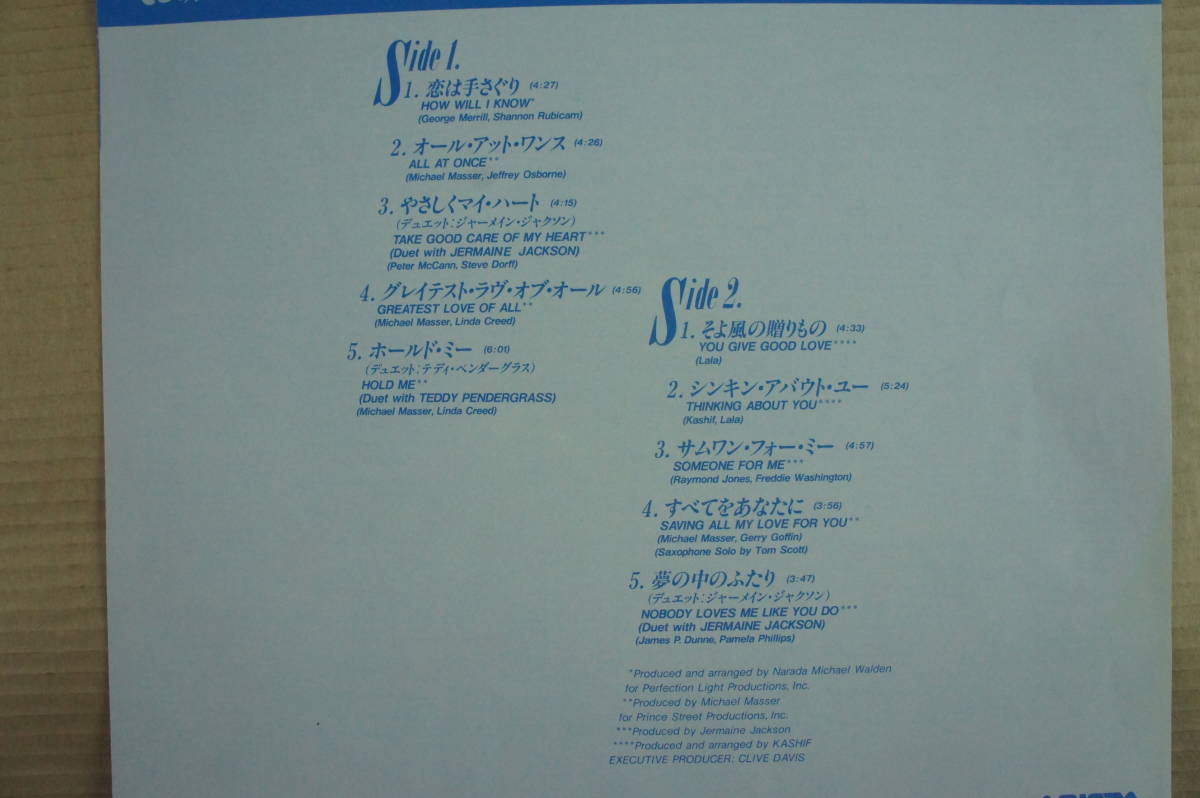 Side 1.
1. 恋は手さぐり (4:27)
HOW WILL I KNOW*
(George Merrill, Shannon Rubicam)
2. オール・アット・ワンス (4:26)
ALL AT ONCE**
(Michael Masser, Jeffrey Osborne)
3. やさしくマイ・ハート (4:15)
(デュエット:ジャーメイン・ジャクソン)
TAKE GOOD CARE OF MY HEART***
(Duet with JERMAINE JACKSON)
(Peter McCann, Steve Dorff)
4. グレイテスト・ラヴ・オブ・オール (4:56)
GREATEST LOVE OF ALL**
(Michael Masser, Linda Creed)
5. ホールド・ミー (6:01)
(デュエット:テディ・ペンダーグラス)
HOLD ME**
(Duet with TEDDY PENDERGRASS)
(Michael Masser, Linda Creed)
Side 2.
1. そよ風の贈りもの (4:33)
YOU GIVE GOOD LOVE****
(Lala)
2. シンキン・アバウト・ユー (5:24)
THINKING ABOUT YOU****
(Kashif, Lala)
3. サムワン・フォー・ミー (4:57)
SOMEONE FOR ME***
(Raymond Jones, Freddie Washington)
4. すべてをあなたに (3:56)
SAVING ALL MY LOVE FOR YOU**
(Michael Masser, Gerry Goffin)
(Saxophone Solo by Tom Scott)
5. 夢の中のふたり (3:47)
(デュエット:ジャーメイン・ジャクソン)
NOBODY LOVES ME LIKE YOU DO***
(Duet with JERMAINE JACKSON)
(James P. Dunne, Pamela Phillips)
*Produced and arranged by Narada Michael Walden
for Perfection Light Productions, Inc.
**Produced by Michael Masser
for Prince Street Productions, Inc.
***Produced by Jermaine Jackson
****Produced and arranged by KASHIF
EXECUTIVE PRODUCER: CLIVE DAVIS